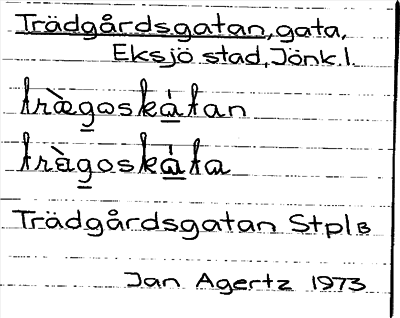 Trädgårdsgatan, gata,
Eksjö stad, Jönk. l.
tràgoskátan
tràgoskáta
Trädgårdsgatan Stpl B
Jan Agertz 1973